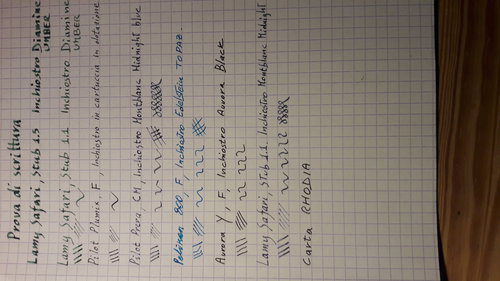 Prova di scrittura
Lamy Safari, Stub 1.5 Inchiostro Diamine
UMBER
Lamy Safari, Stub 1.1 Inchiostro Diamine
UMBER
Pilot Plumix, F, Inchiostro in cartuccia in dotazione
Pilot Prera CM, Inchiostro Montblanc Midnight blue
Pelikan 800, F, Inchiostro Edelstein TOPAZ
Aurora Y, F, Inchiostro Aurora Black
Lamy Safari, Stub 1.1. Inchiostro Montblanc Midnight
Carta RHODIA